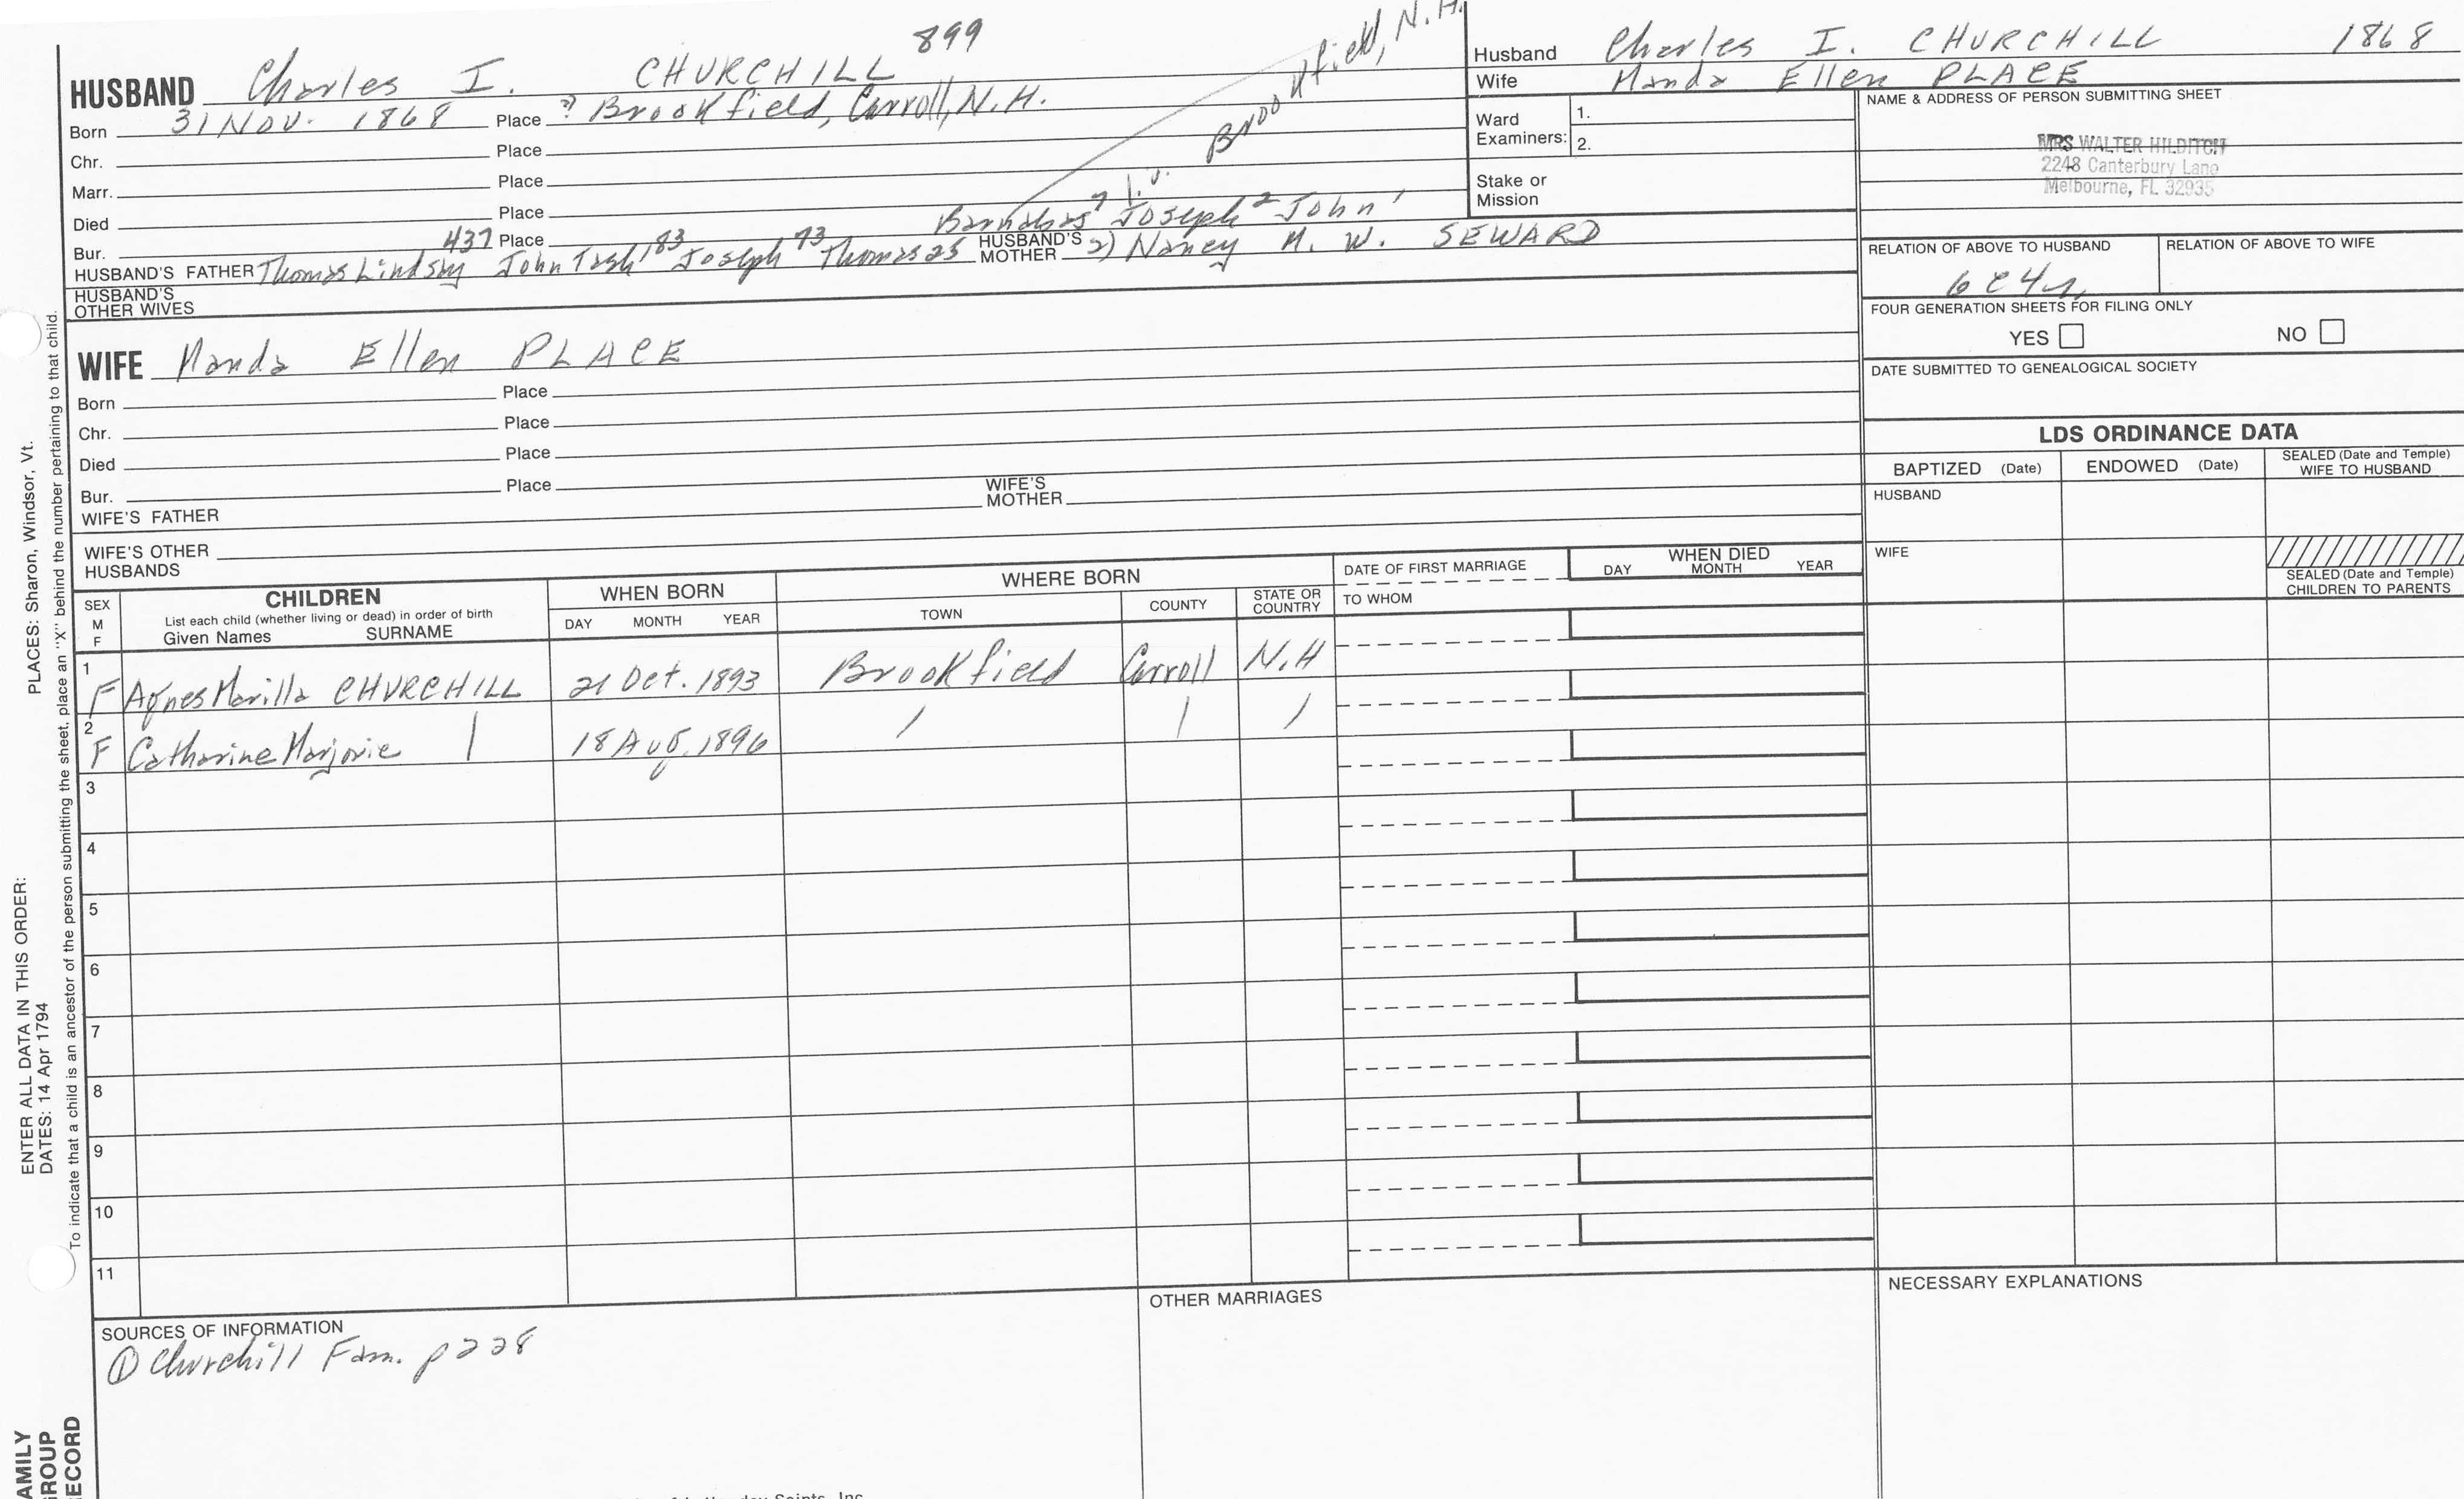 899
Brookfield, N.H.
HUSBAND Charles I. CHURCHILL
Born 31 Nov. 1868 Place ?) Brookfield, Carroll, N.H.
Chr. Place
Marr. Place
Died Place
Bur. Place
Barnabas Joseph 2 John 1
437 183 73
HUSBAND'S FATHER Thomas Lindsay John Tash Joseph Thomas 25 HUSBAND'S MOTHER 2) Nancy M. W. SEWARD
HUSBAND'S
OTHER WIVES
Husband Charles I. CHURCHILL 1868
Wife Manda Ellen PLACE
Ward
Examiners:
1.
2.
Stake or
Mission
NAME & ADDRESS OF PERSON SUBMITTING SHEET
MRS WALTER HILDITCH
2248 Canterbury Lane
Melbourne, FL 32935
RELATION OF ABOVE TO HUSBAND RELATION OF ABOVE TO WIFE
6C4r
FOUR GENERATION SHEETS FOR FILING ONLY
YES NO
DATE SUBMITTED TO GENEALOGICAL SOCIETY
WIFE Manda Ellen PLACE
Born Place
Chr. Place
Died Place
Bur. Place
WIFE'S FATHER WIFE'S MOTHER
WIFE'S OTHER
HUSBANDS
LDS ORDINANCE DATA
BAPTIZED (Date) ENDOWED (Date) SEALED (Date and Temple)
WIFE TO HUSBAND
HUSBAND
WIFE
SEALED (Date and Temple)
CHILDREN TO PARENTS
SEX
M
F
CHILDREN
List each child (whether living or dead) in order of birth
Given Names SURNAME
WHEN BORN
DAY MONTH YEAR
WHERE BORN
TOWN COUNTY STATE OR COUNTRY
DATE OF FIRST MARRIAGE
TO WHOM
WHEN DIED
DAY MONTH YEAR
1
F Agnes Marilla CHURCHILL 21 Oct. 1893 Brookfield Carroll N.H
2
F Catharine Marjorie | 18 Aug. 1896 / | /
3
4
5
6
7
8
9
10
11
SOURCES OF INFORMATION
① Churchill Fam. p 228
OTHER MARRIAGES
NECESSARY EXPLANATIONS
Saints, Inc
ENTER ALL DATA IN THIS ORDER:
PLACES: Sharon, Windsor, Vt.
DATES: 14 Apr 1794
To indicate that a child is an ancestor of the person submitting the sheet, place an "X" behind the number pertaining to that child.
AMILY
ROUP
ECORD